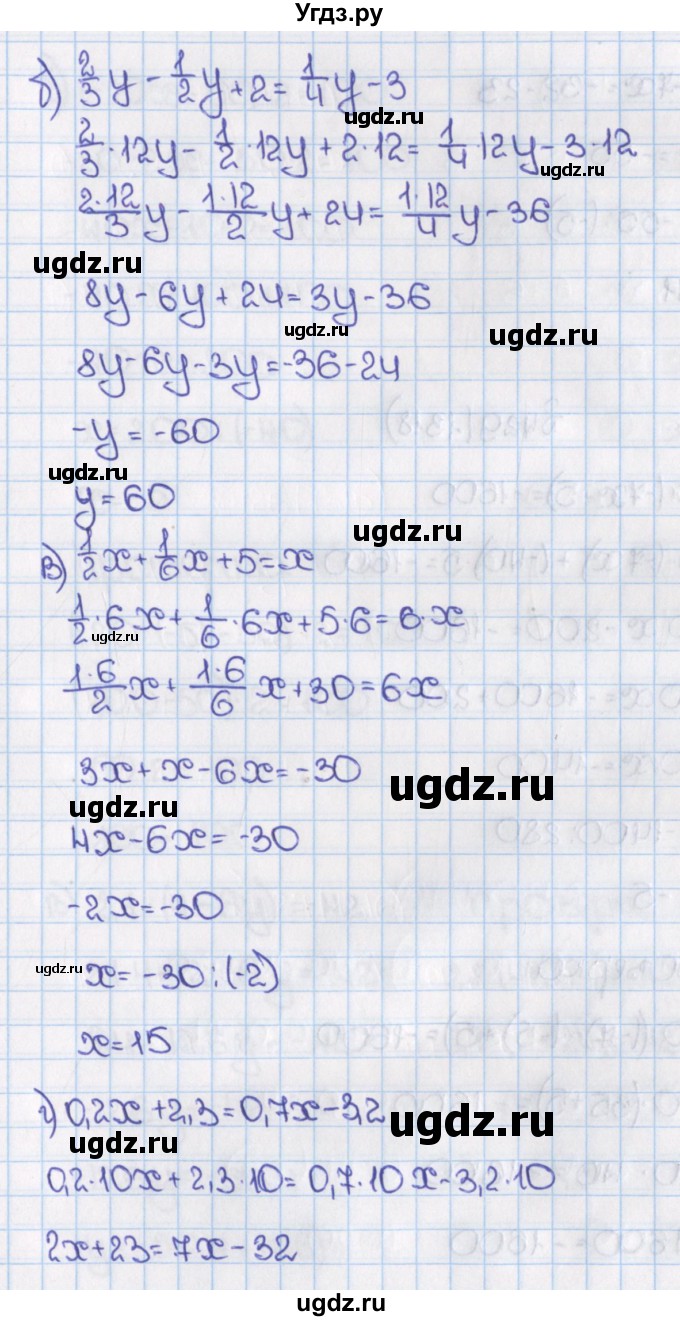 Угдз.ру
б) 2/3 y - 1/2 y + 2 = 1/4 y - 3
2/3 · 12y - 1/2 · 12y + 2 · 12 = 1/4 · 12y - 3 · 12
ugdz.ru
2·12/3 y - 1·12/2 y + 24 = 1·12/4 y - 36
ugdz.ru
ugdz.ru
8y - 6y + 24 = 3y - 36
ugdz.ru
ugdz.ru
8y - 6y - 3y = -36 - 24
-y = -60
ugdz.ru
y = 60
ugdz.ru
в) 1/2 x + 1/6 x + 5 = x
1/2 · 6x + 1/6 · 6x + 5 · 6 = 6 · x
ugdz.ru
1·6/2 x + 1·6/6 x + 30 = 6x
3x + x - 6x = -30
ugdz.ru
ugdz.ru
4x - 6x = -30
-2x = -30
ugdz.ru
x = -30 : (-2)
x = 15
г) 0,2x + 2,3 = 0,7x - 3,2
ugdz.ru
ugdz.ru
0,2 · 10x + 2,3 · 10 = 0,7 · 10x - 3,2 · 10
2x + 23 = 7x - 32
ugdz.ru
ugdz.ru